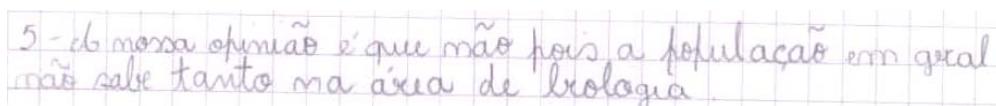 5 - A nossa opinião é que não pois a população em geral
não sabe tanto na área de biologia.